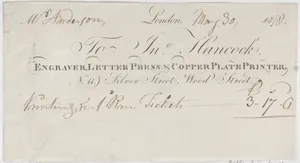 Mr Anderson, London, May 30, 1818.
To Jno. Hancock,
ENGRAVER, LETTER PRESS & COPPER PLATE PRINTER,
Silver Street, Wood Street
Tickets 3.17.6